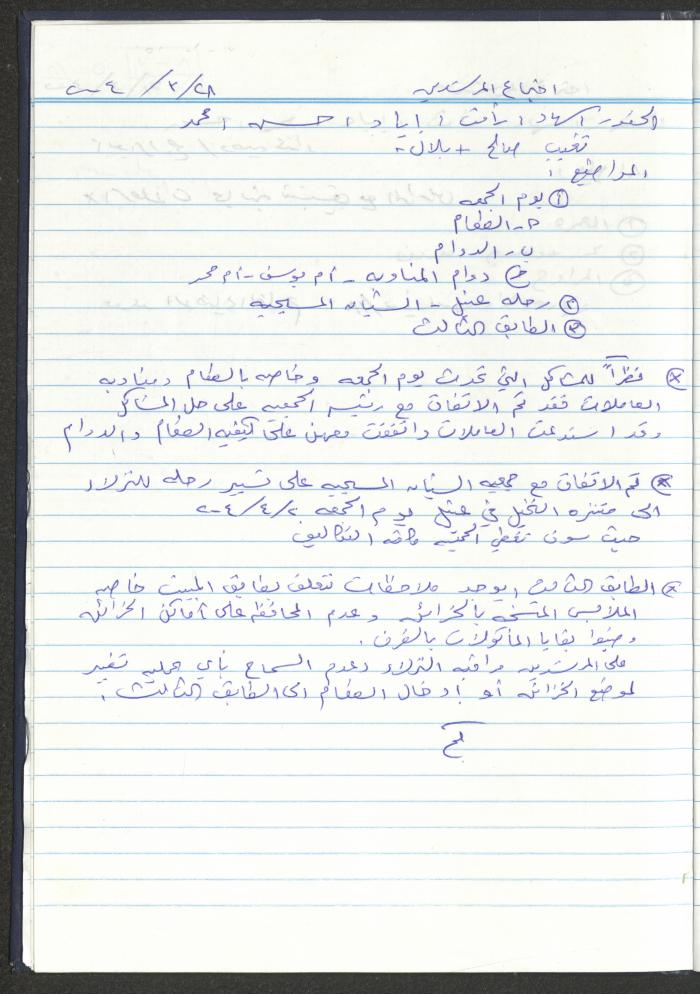 اجتماع المرشدين ٢٨/ ٣/ ٢٠٠٤
الحضور: سهاد، رأفت، اياد، حسن، محمد
تغيب صالح + بلال
المواضيع:
① يوم الجمعه
أ- الطعام
ب- الدوام
ج دوام المناوبه - أم يوسف - أم محمد
② رحله - الشبان المسيحيه
③ الطابق الثالث
* نظراً للمشاكل التي تحدث يوم الجمعه وخاصه بالطعام ومناوبه
العاملات فقد تم الاتفاق مع رئيس الجمعيه على حل المشاكل
وقد استدعت العاملات واتفقت معهن على كيفيه الطعام والدوام
* تم الاتفاق مع جمعيه الشبان المسيحيه على تسيير رحله للنزلاء
الى متنزه النخيل في يوم الجمعه ٢/ ٤/ ٢٠٠٤
حيث سوف تغطي الجمعيه كافه التكاليف
* الطابق الثالث: يوجد ملاحظات تتعلق بطابق المبيت خاصه
الملابس المتسخه بالخزائن وعدم المحافظه على أماكن الخزائن
بقايا المأكولات بالغرف.
على المرشدين مراقبه النزلاء وعدم السماح بأي عمليه تغيير
لموضع الخزائن أو إدخال الطعام الى الطابق الثالث.